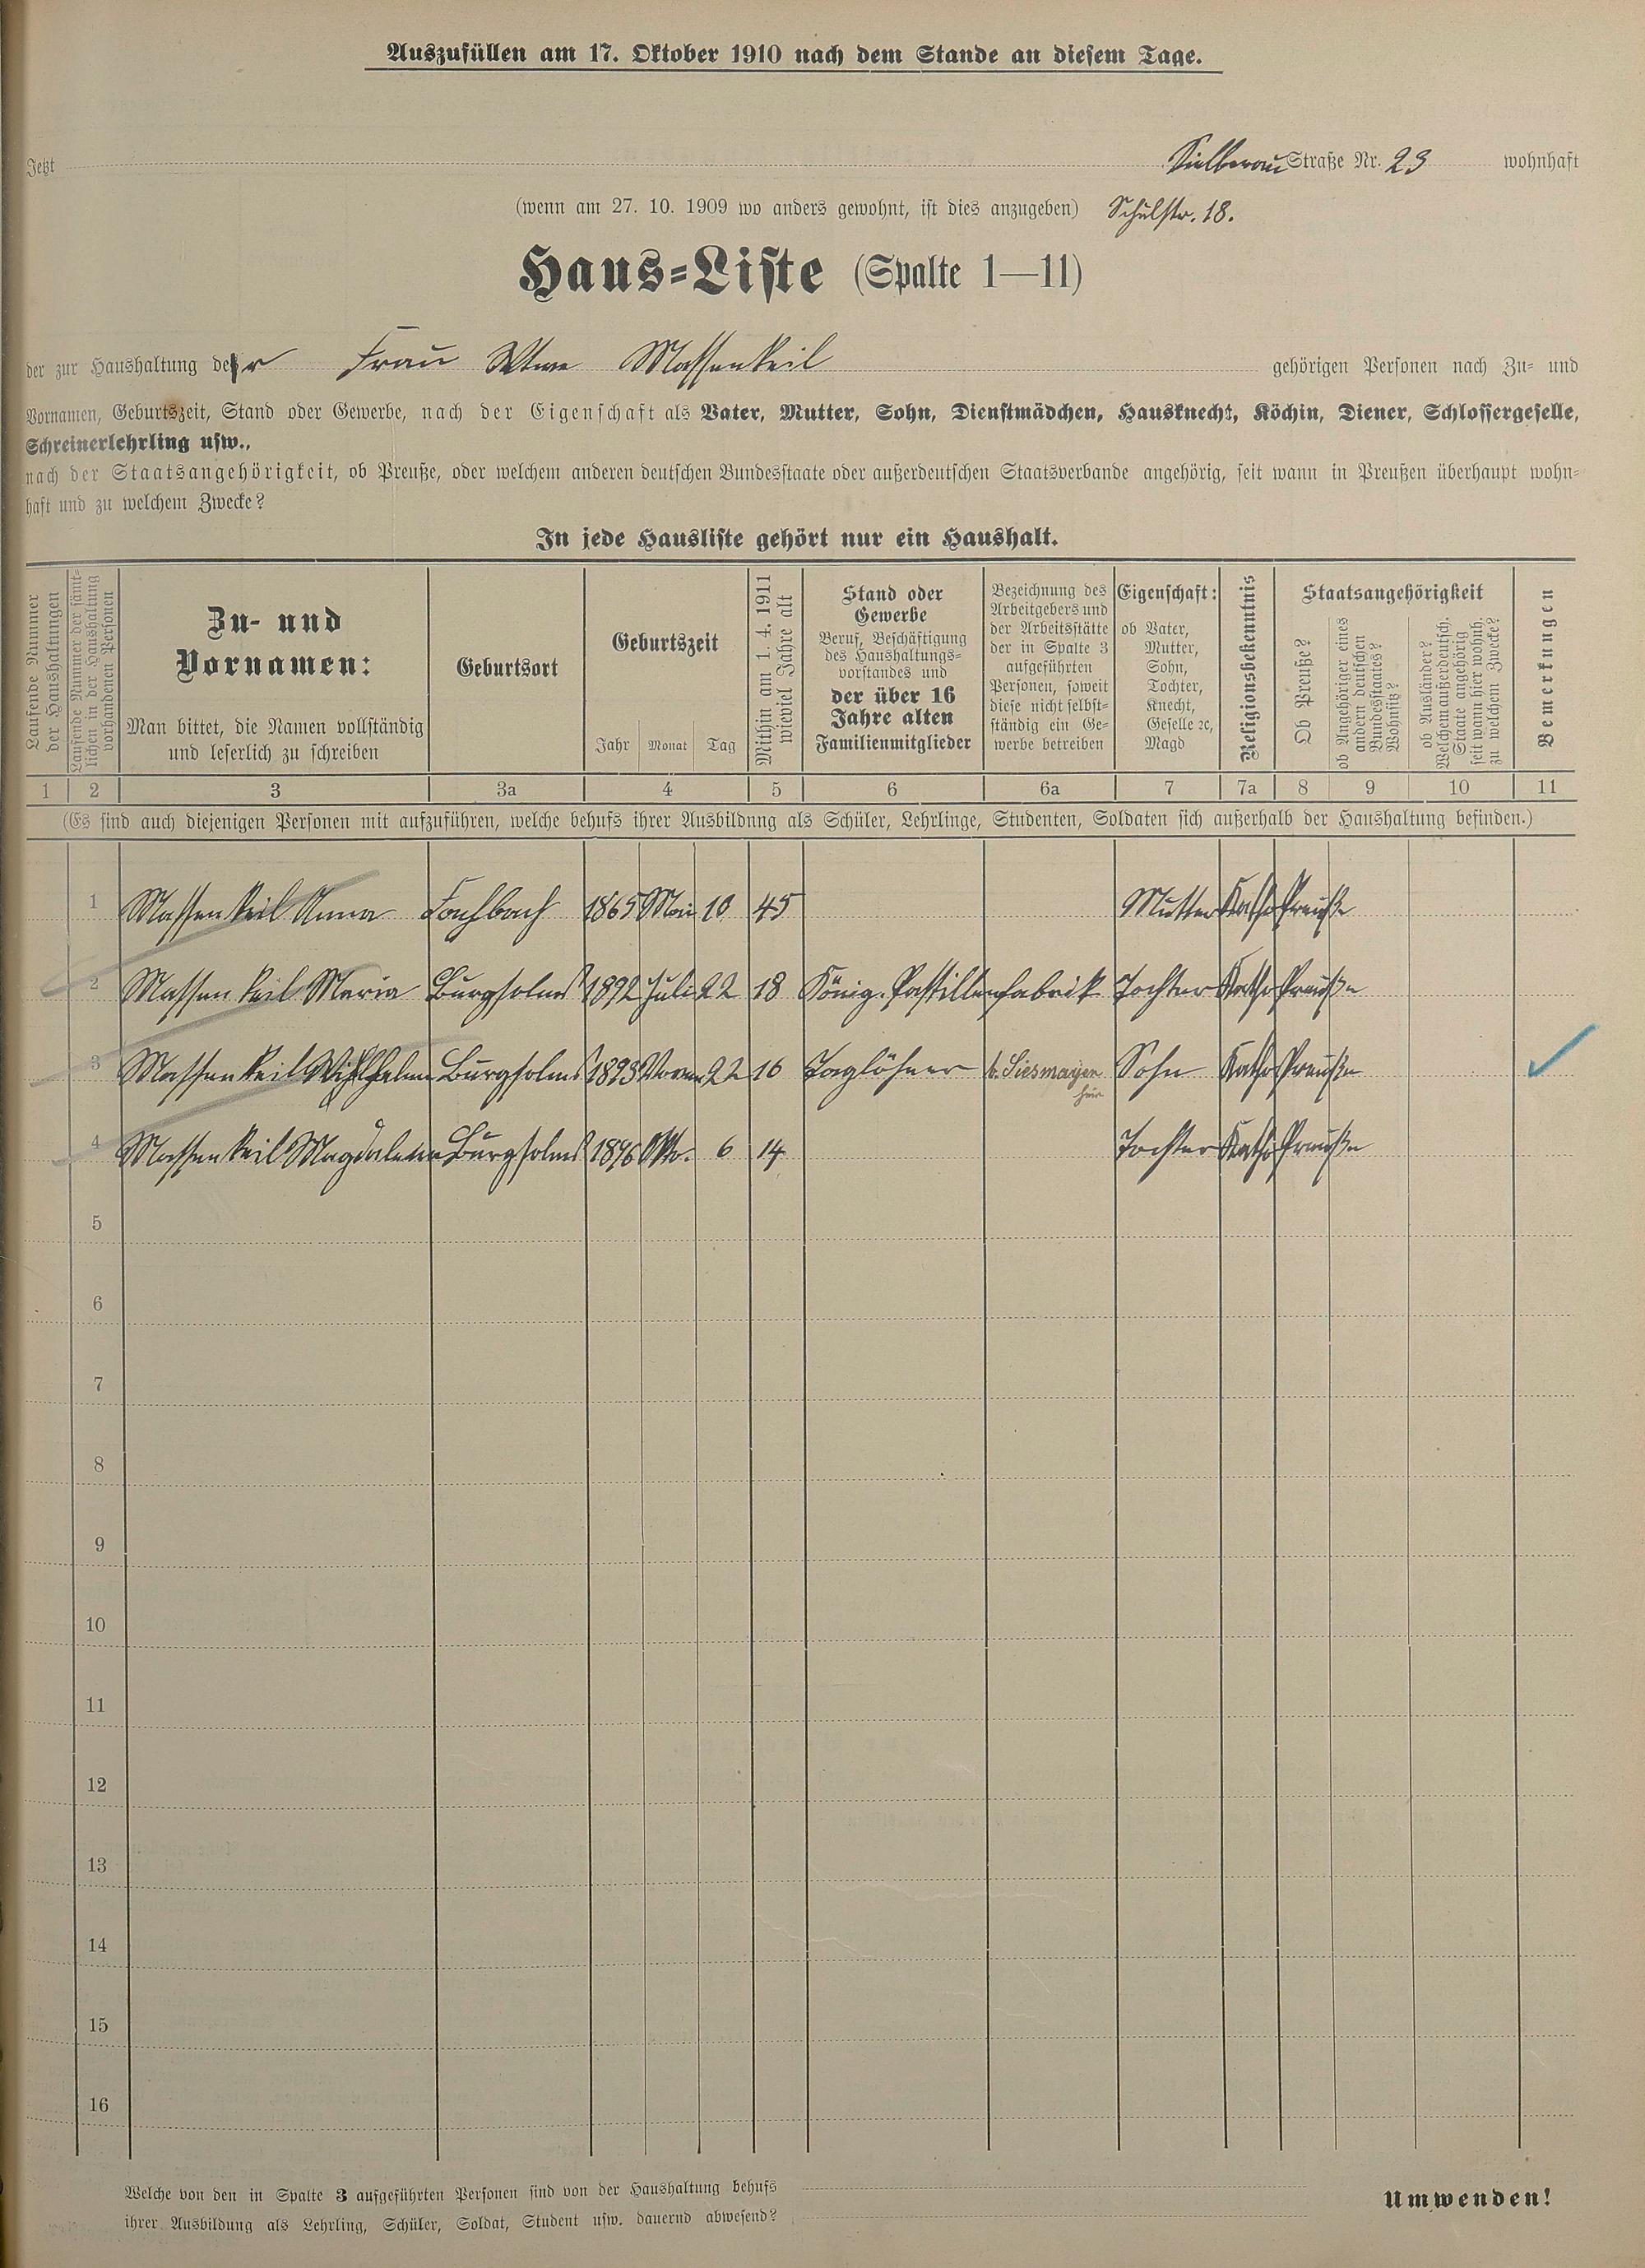 Auszufüllen am 17. Oktober 1910 nach dem Stande an diesem Tage.
Jetzt Straße Nr. 23 wohnhaft
(wenn am 27. 10. 1909 wo anders gewohnt, ist dies anzugeben) Schulstr. 18.
Haus-Liste (Spalte 1—11)
der zur Haushaltung der Frau Wwe Massenkeil gehörigen Personen nach Zu- und
Vornamen, Geburtszeit, Stand oder Gewerbe, nach der Eigenschaft als Vater, Mutter, Sohn, Dienstmädchen, Hausknecht, Köchin, Diener, Schlossergeselle,
Schreinerlehrling usw.,
nach der Staatsangehörigkeit, ob Preuße, oder welchem anderen deutschen Bundesstaate oder außerdeutschen Staatsverbande angehörig, seit wann in Preußen überhaupt wohn-
haft und zu welchem Zwecke?
In jede Hausliste gehört nur ein Haushalt.
Laufende Nummer
der Haushaltungen
Laufende Nummer der sämt-
lichen in der Haushaltung
vorhandenen Personen
Zu- und
Vornamen:
Man bittet, die Namen vollständig
und leserlich zu schreiben
Geburtsort
Geburtszeit
Jahr Monat Tag
Mithin am 1. 4. 1911
wieviel Jahre alt
Stand oder
Gewerbe
Beruf, Beschäftigung
des Haushaltungs-
vorstandes und
der über 16
Jahre alten
Familienmitglieder
Bezeichnung des
Arbeitgebers und
der Arbeitsstätte
der in Spalte 3
aufgeführten
Personen, soweit
diese nicht selbst-
ständig ein Ge-
werbe betreiben
Eigenschaft:
ob Vater,
Mutter,
Sohn,
Tochter,
Knecht,
Geselle ec,
Magd
Religionsbekenntnis
Staatsangehörigkeit
Ob Preuße?
ob Angehöriger eines
andern deutschen
Bundesstaates?
Wohnsitz?
ob Ausländer?
Welchem außerdeutsch.
Staate angehörig
seit wann hier wohnh.
zu welchem Zwecke?
Bemerkungen
1 2 3 3a 4 5 6 6a 7 7a 8 9 10 11
(Es sind auch diejenigen Personen mit aufzuführen, welche behufs ihrer Ausbildung als Schüler, Lehrlinge, Studenten, Soldaten sich außerhalb der Haushaltung befinden.)
1 Massenkeil Anna Fachbach 1865 Mai 10 45 Mutter Kath Preuße
2 Massenkeil Maria Burgsolms 1892 Juli 22 18 König. Pastillenfabrik Tochter Kath Preuße
3 Massenkeil Wilhelm Burgsolms 22 16 Taglöhner b. Siesmayer hier Sohn Kath Preuße
4 Massenkeil Magdalena Burgsolms 1896 Okto. 6 14 Tochter Kath Preuße
5
6
7
8
9
10
11
12
13
14
15
16
Welche von den in Spalte 3 aufgeführten Personen sind von der Haushaltung behufs
ihrer Ausbildung als Lehrling, Schüler, Soldat, Student usw. dauernd abwesend?
Umwenden!